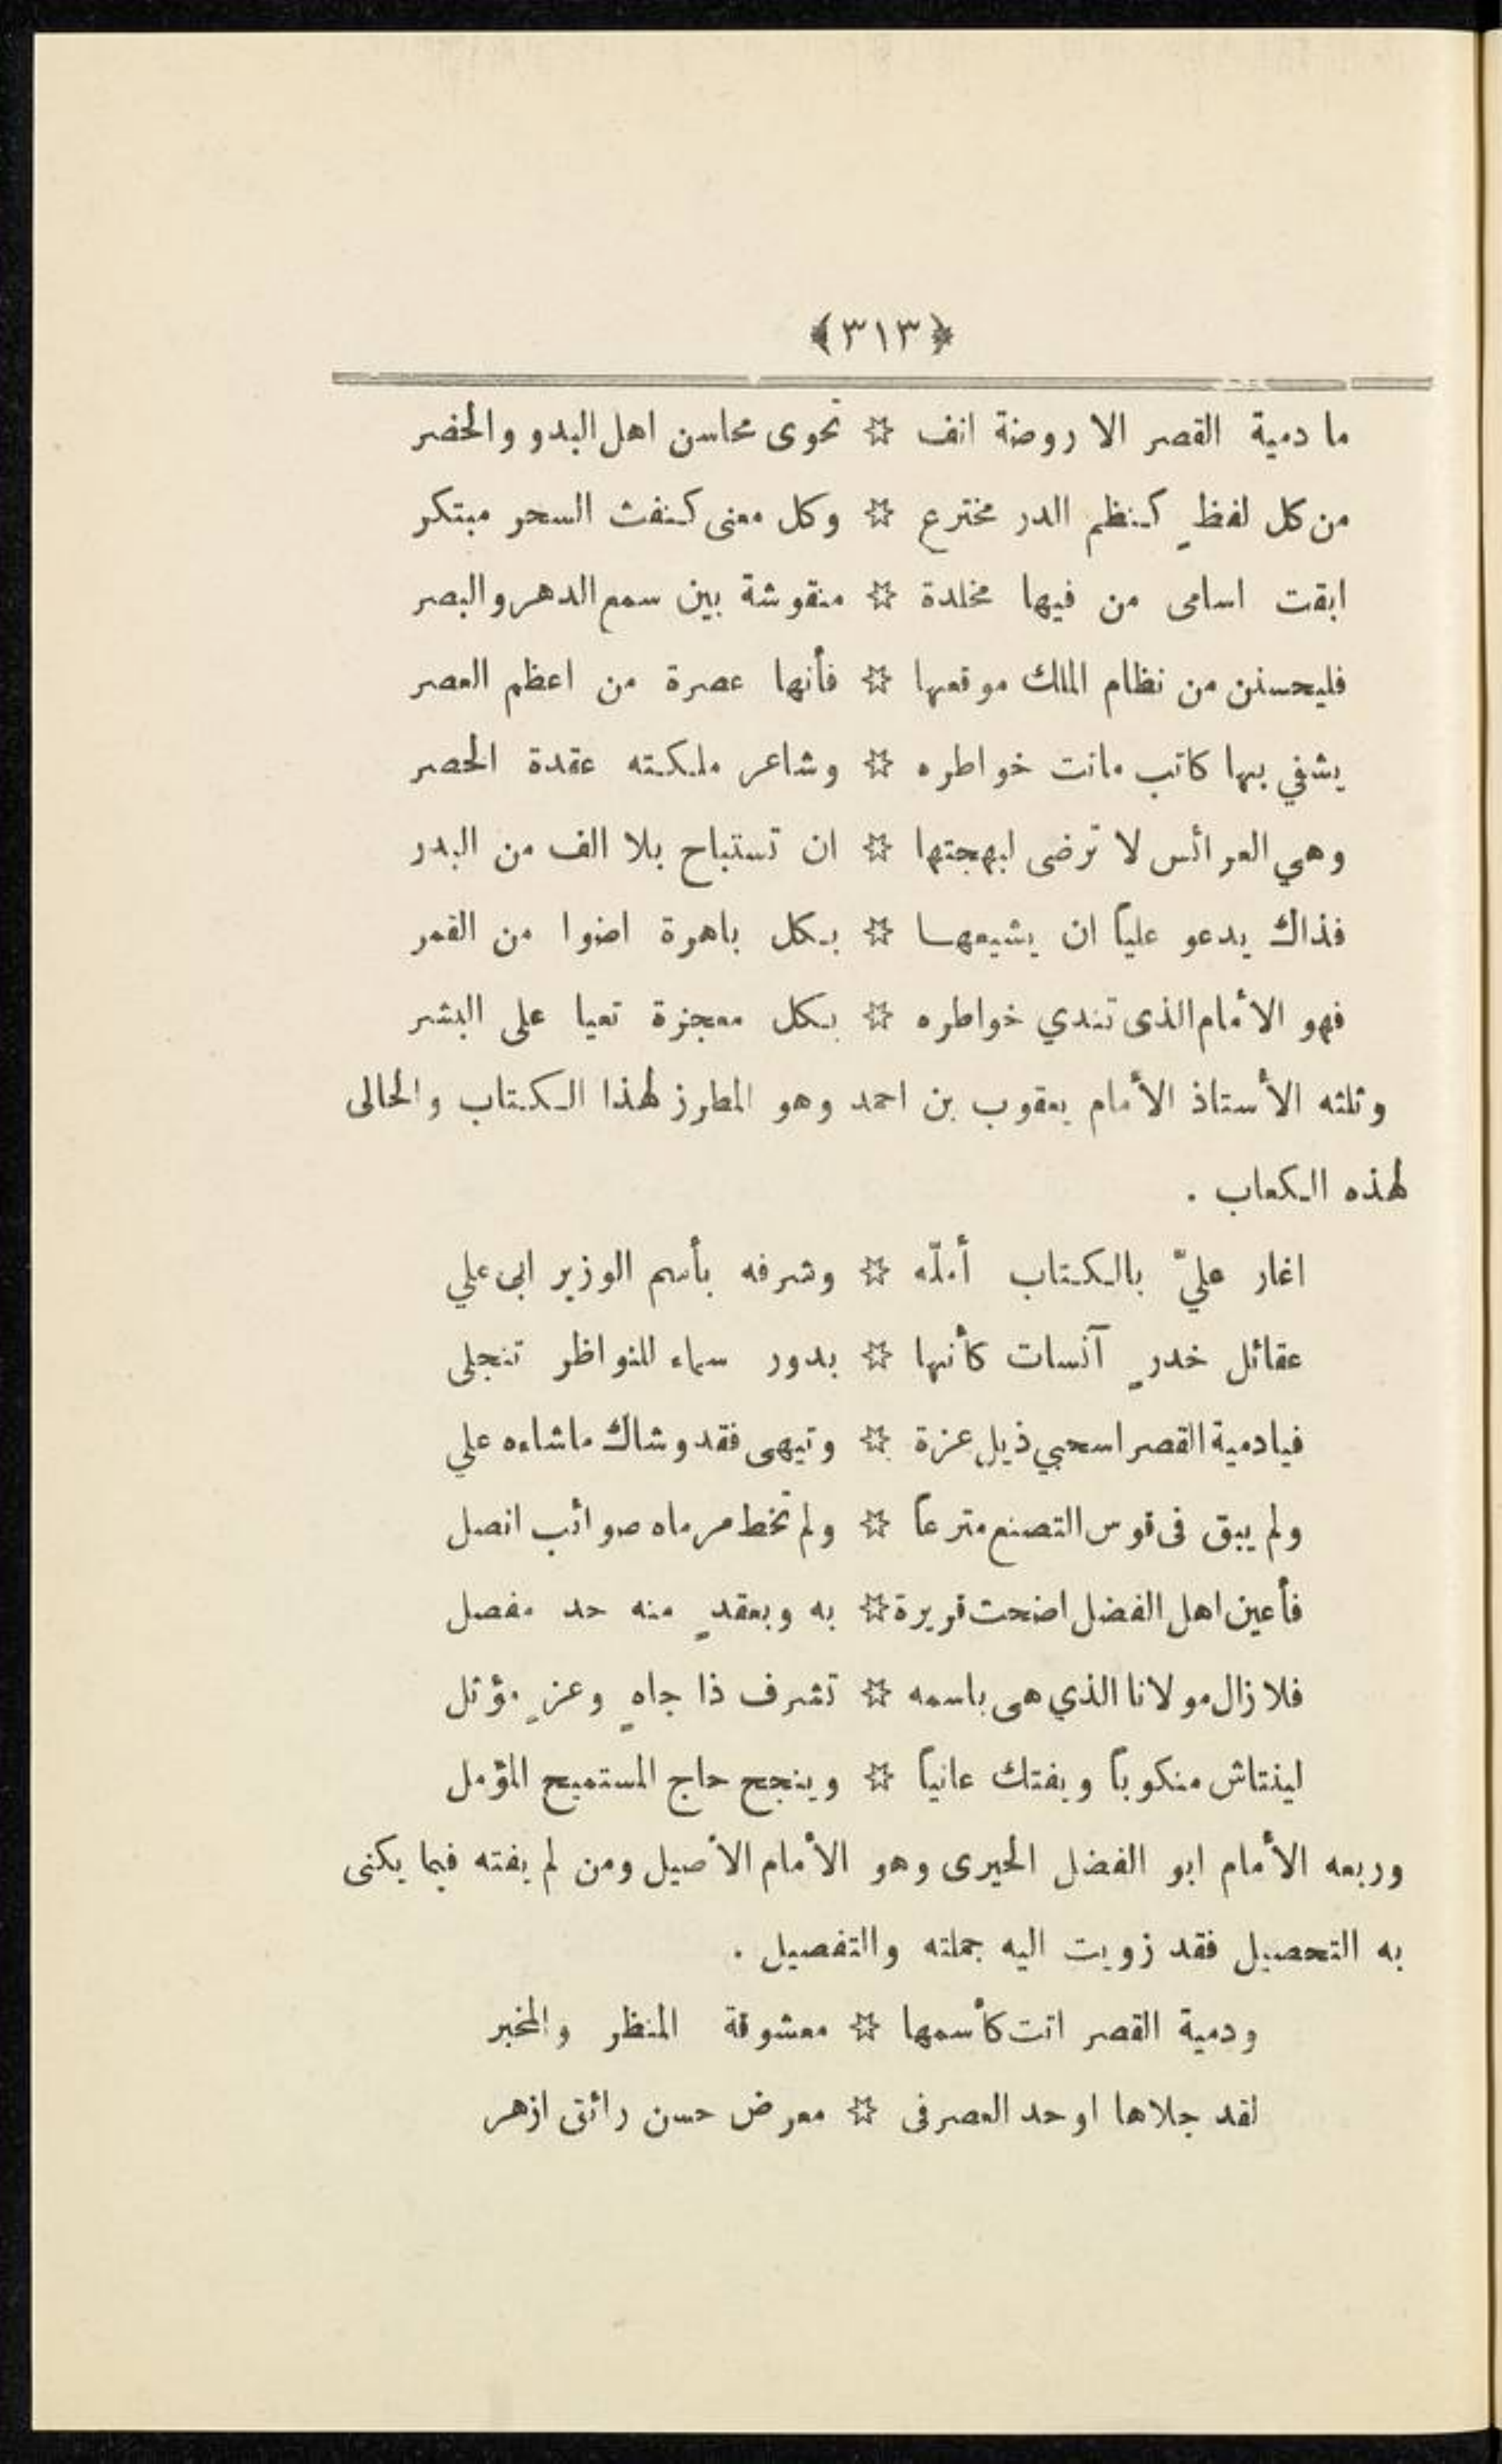 ﴿٣١٣﴾
ما دمية القصر الا روضة انف ✡ تحوى محاسن اهل البدو والحضر
من كل لفظٍ كنظم الدر مخترع ✡ وكل معنى كنفث السحر مبتكر
ابقت اسامى من فيها مخلدة ✡ منقوشة بين سمع الدهر والبصر
فليحسنن من نظام الملك موقعها ✡ فأنها عصرة من اعظم العصر
يشفي بها كاتب مانت خواطره ✡ وشاعر ملكته عقدة الحصر
وهي العرائس لا ترضى لبهجتها ✡ ان تستباح بلا الف من البدر
فذاك يدعو علياً ان يشيعها ✡ بكل باهرة اضوا من القمر
فهو الأمام الذى تندي خواطره ✡ بكل معجزة تعيا على البشر
وثلثه الأستاذ الأمام يعقوب بن احمد وهو المطرز لهذا الكتاب والحالى
لهذه الكعاب .
اغار عليّ بالكتاب أملّه ✡ وشرفه بأسم الوزير ابى علي
عقائل خدرٍ آنسات كأنها ✡ بدور سماء للنواظر تنجلى
فيادمية القصر اسحبي ذيل عزة ✡ وتيهى فقد وشاك ماشاءه علي
ولم يبق فى قوس التصنع مترعاً ✡ ولم تخط مرماه صوائب انصل
فأعين اهل الفضل اضحت قريرة ✡ به وبعقدٍ منه حد مفصل
فلا زال مولانا الذي هى باسمه ✡ تشرف ذا جاهٍ وعزٍ مؤثل
لينتاش منكوباً ويفتك عانياً ✡ وينجح حاج المستميح المؤمل
وربعه الأمام ابو الفضل الحيرى وهو الأمام الأصيل ومن لم يفته فيما يكنى
به التحصيل فقد زويت اليه جملته والتفصيل .
ودمية القصر اتت كأسمها ✡ معشوقة المنظر والمخبر
لقد جلاها اوحد العصر فى ✡ معرض حسن رائق ازهر